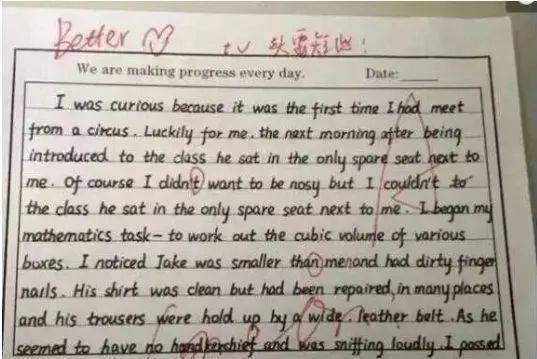 Better
头要短些!
We are making progress every day. Date:
I was curious because it was the first time I had meet
from a circus. Luckily for me. the next morning after being
introduced to the class he sat in the only spare seat next to
me. Of course I didn't want to be nosy but I couldn't to
the class he sat in the only spare seat next to me. I began my
mathematics task- to work out the cubic volume of various
boxes. I noticed Jake was smaller than menand had dirty finger
nails. His shirt was clean but had been repaired, in many places
and his trousers were hold up by a wide. leather belt. As he
seemed to have no handkerchief and was sniffing loudly. I passed